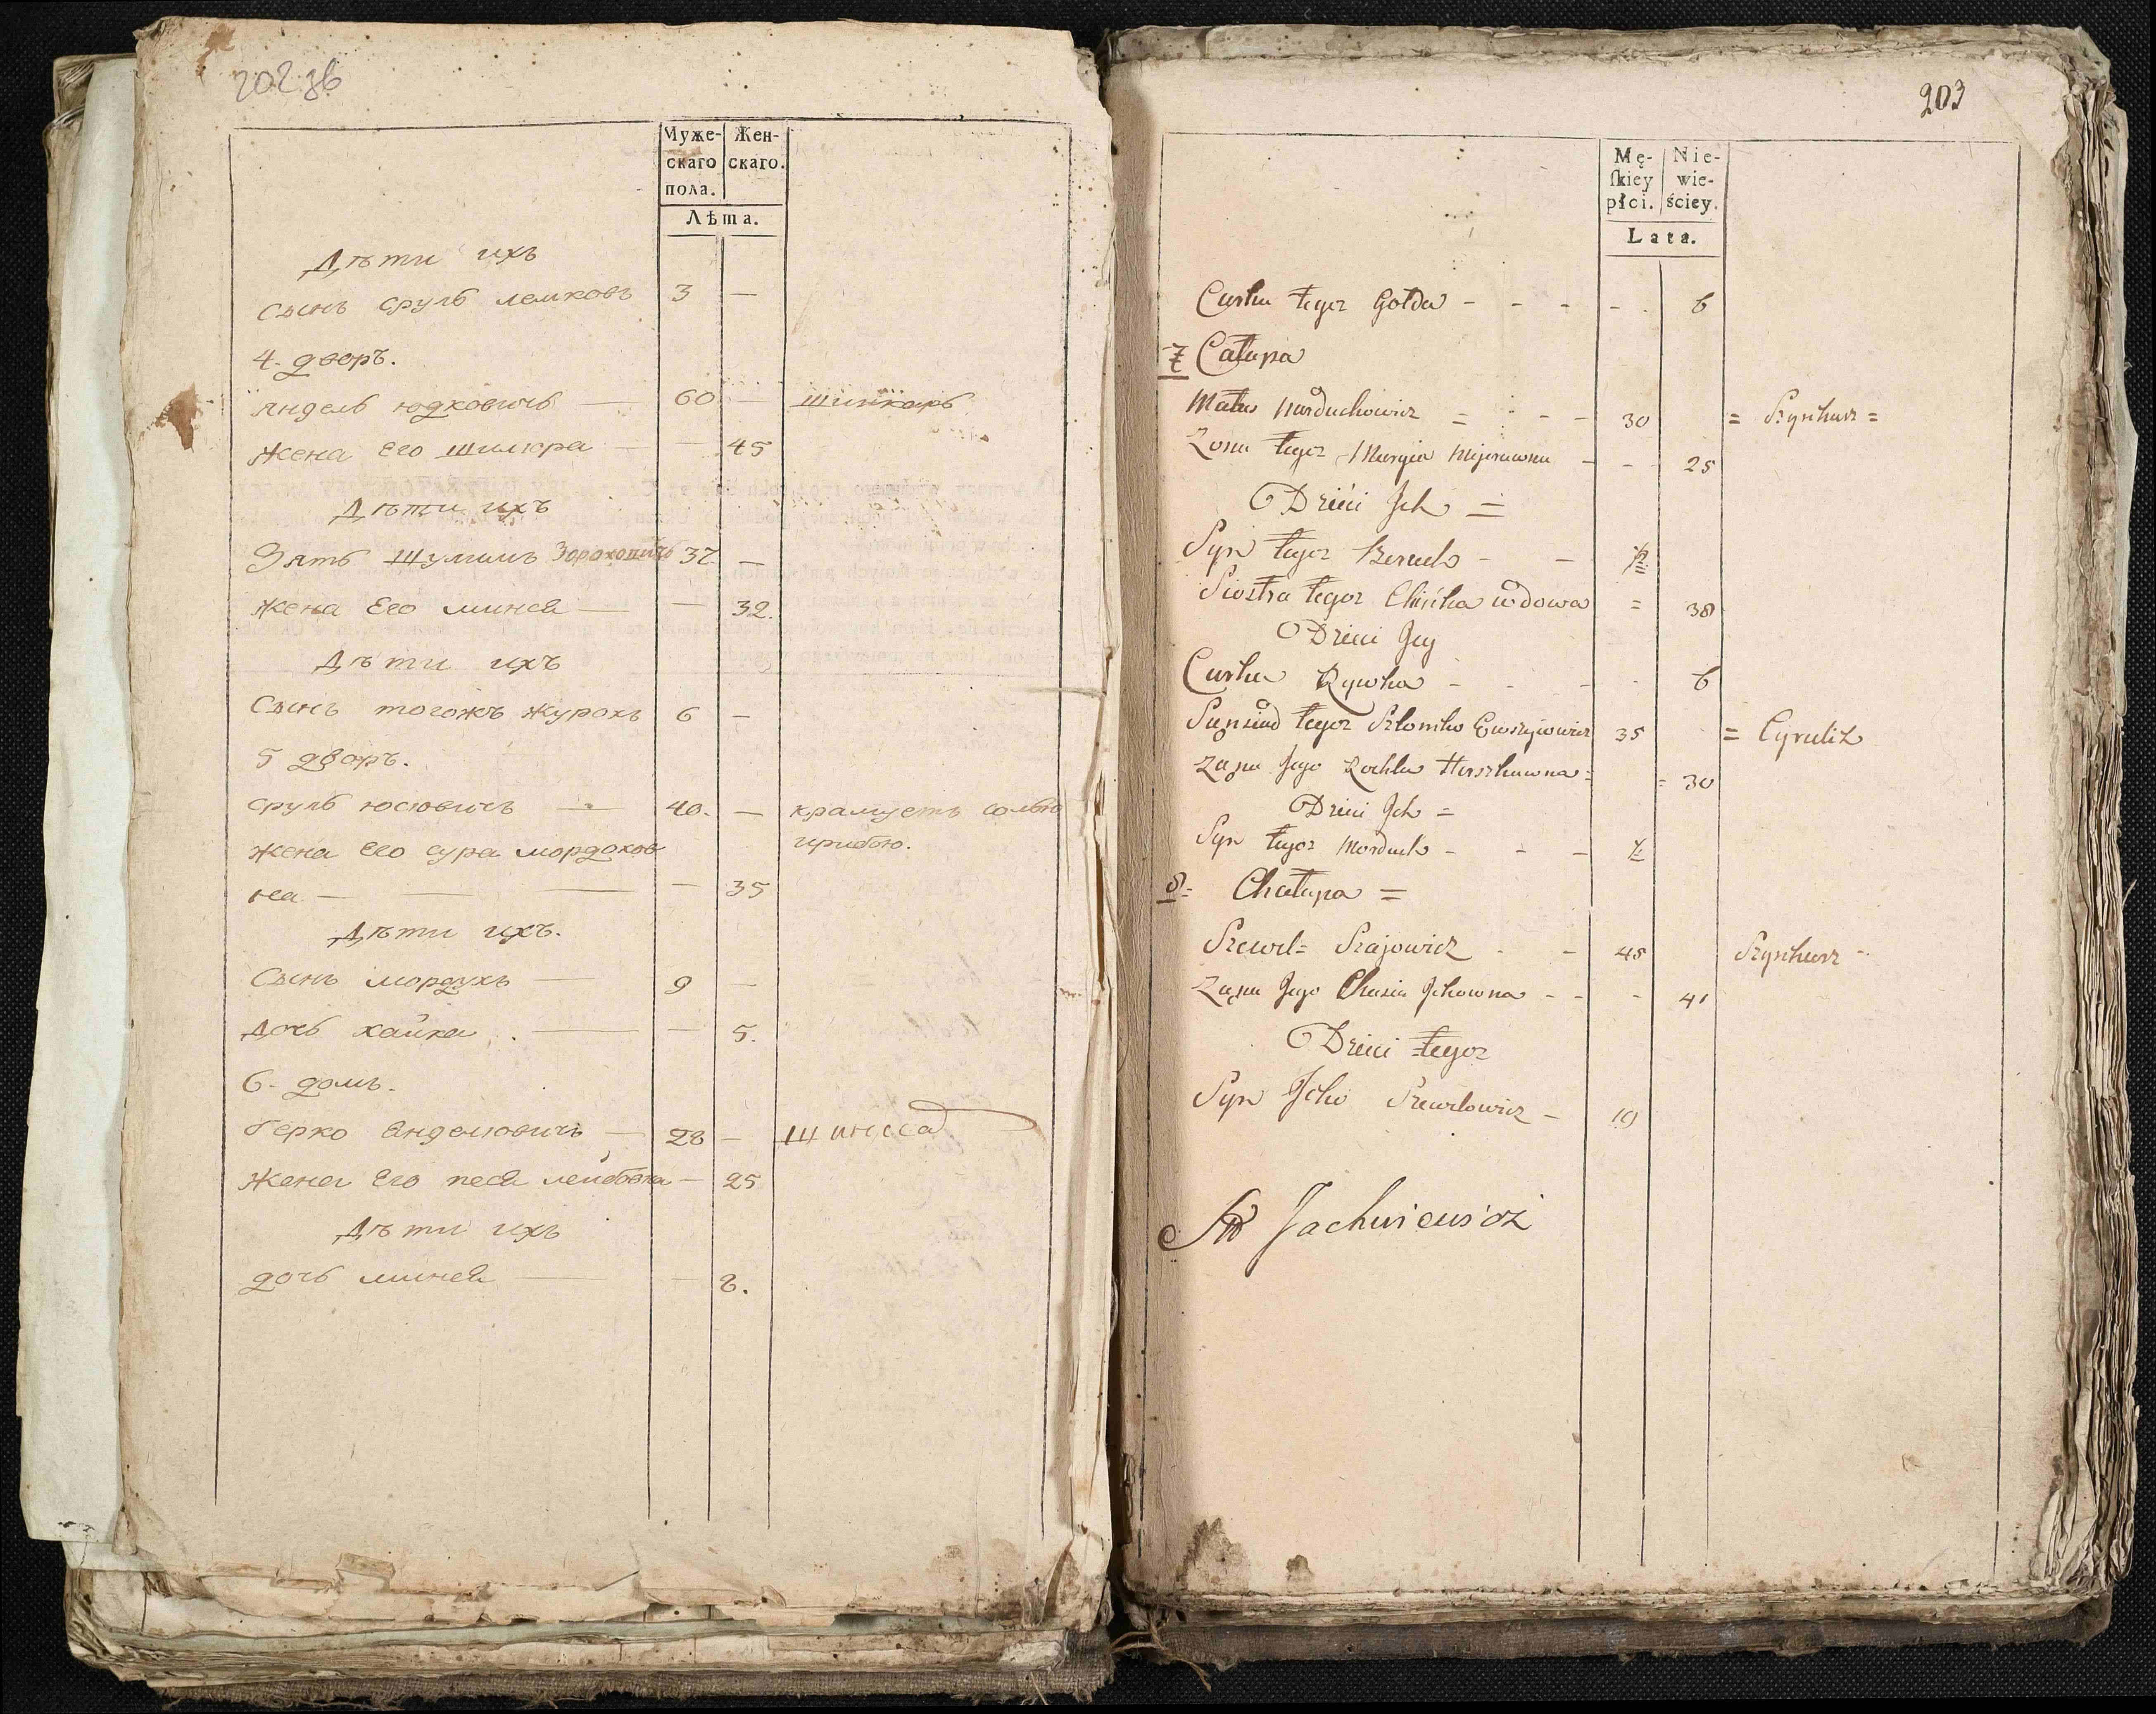 202 зв
Муже-
скаго
пола.
Жен-
скаго.
Лѣта.
Дѣти ихъ
Сынъ сруль лемковъ 3 —
4. дворъ.
Яндель юдковичь — 60 — шинкарь
жена Его шлюра — — 45
Дѣти ихъ
Зять Шулимъ Зороховичь 37 —
жена Его минся — — 32.
Дѣти ихъ
Сынъ тогожъ журохъ 6 —
5 дворъ.
сруль юсювичь — 40. — крамуетъ солью
жена Его сура мордохов ирибою.
на — — — — 35
Дѣти ихъ.
Сынъ мордухъ — 9 —
Дочь хайка . — — 5.
6. домъ.
Герко Янделювичь — 28 —
жена Его песя лейбовна — 25
Дѣти ихъ
дочь минся — — 2.
203
Mę-
ſkiey
płci.
Nie-
wie-
ściey.
Lata.
Curka tegoz Gołda - - - - 6
7 Całupa
Matus Morduchowicz = - - - 30 = Szynkarz =
Zona tegoz Margia Mejerowna - - 25
Dzieci Jch =
Syn tegoz Beruch - - ½
Siostra tegoz Chińka wdowa = 38
Dzieci Jey
Curka Rywka - - - - 6
Sąnsiad tegoz Szlomko Ewszyiowicz 35 = Cyrulik
Ząna Jego Rochla Herszkowna = = 30
Dzieci Jch =
Syn tegoz Morduch - - - ½
8 = Chałupa =
Szewel = Szajowicz - - 45 Szynkarz -
Ząna Jego Chasia Jckowna - - - 41
Dzieci tegoz
Syn Jcko Szewelowicz - 19
Jachwiewicz